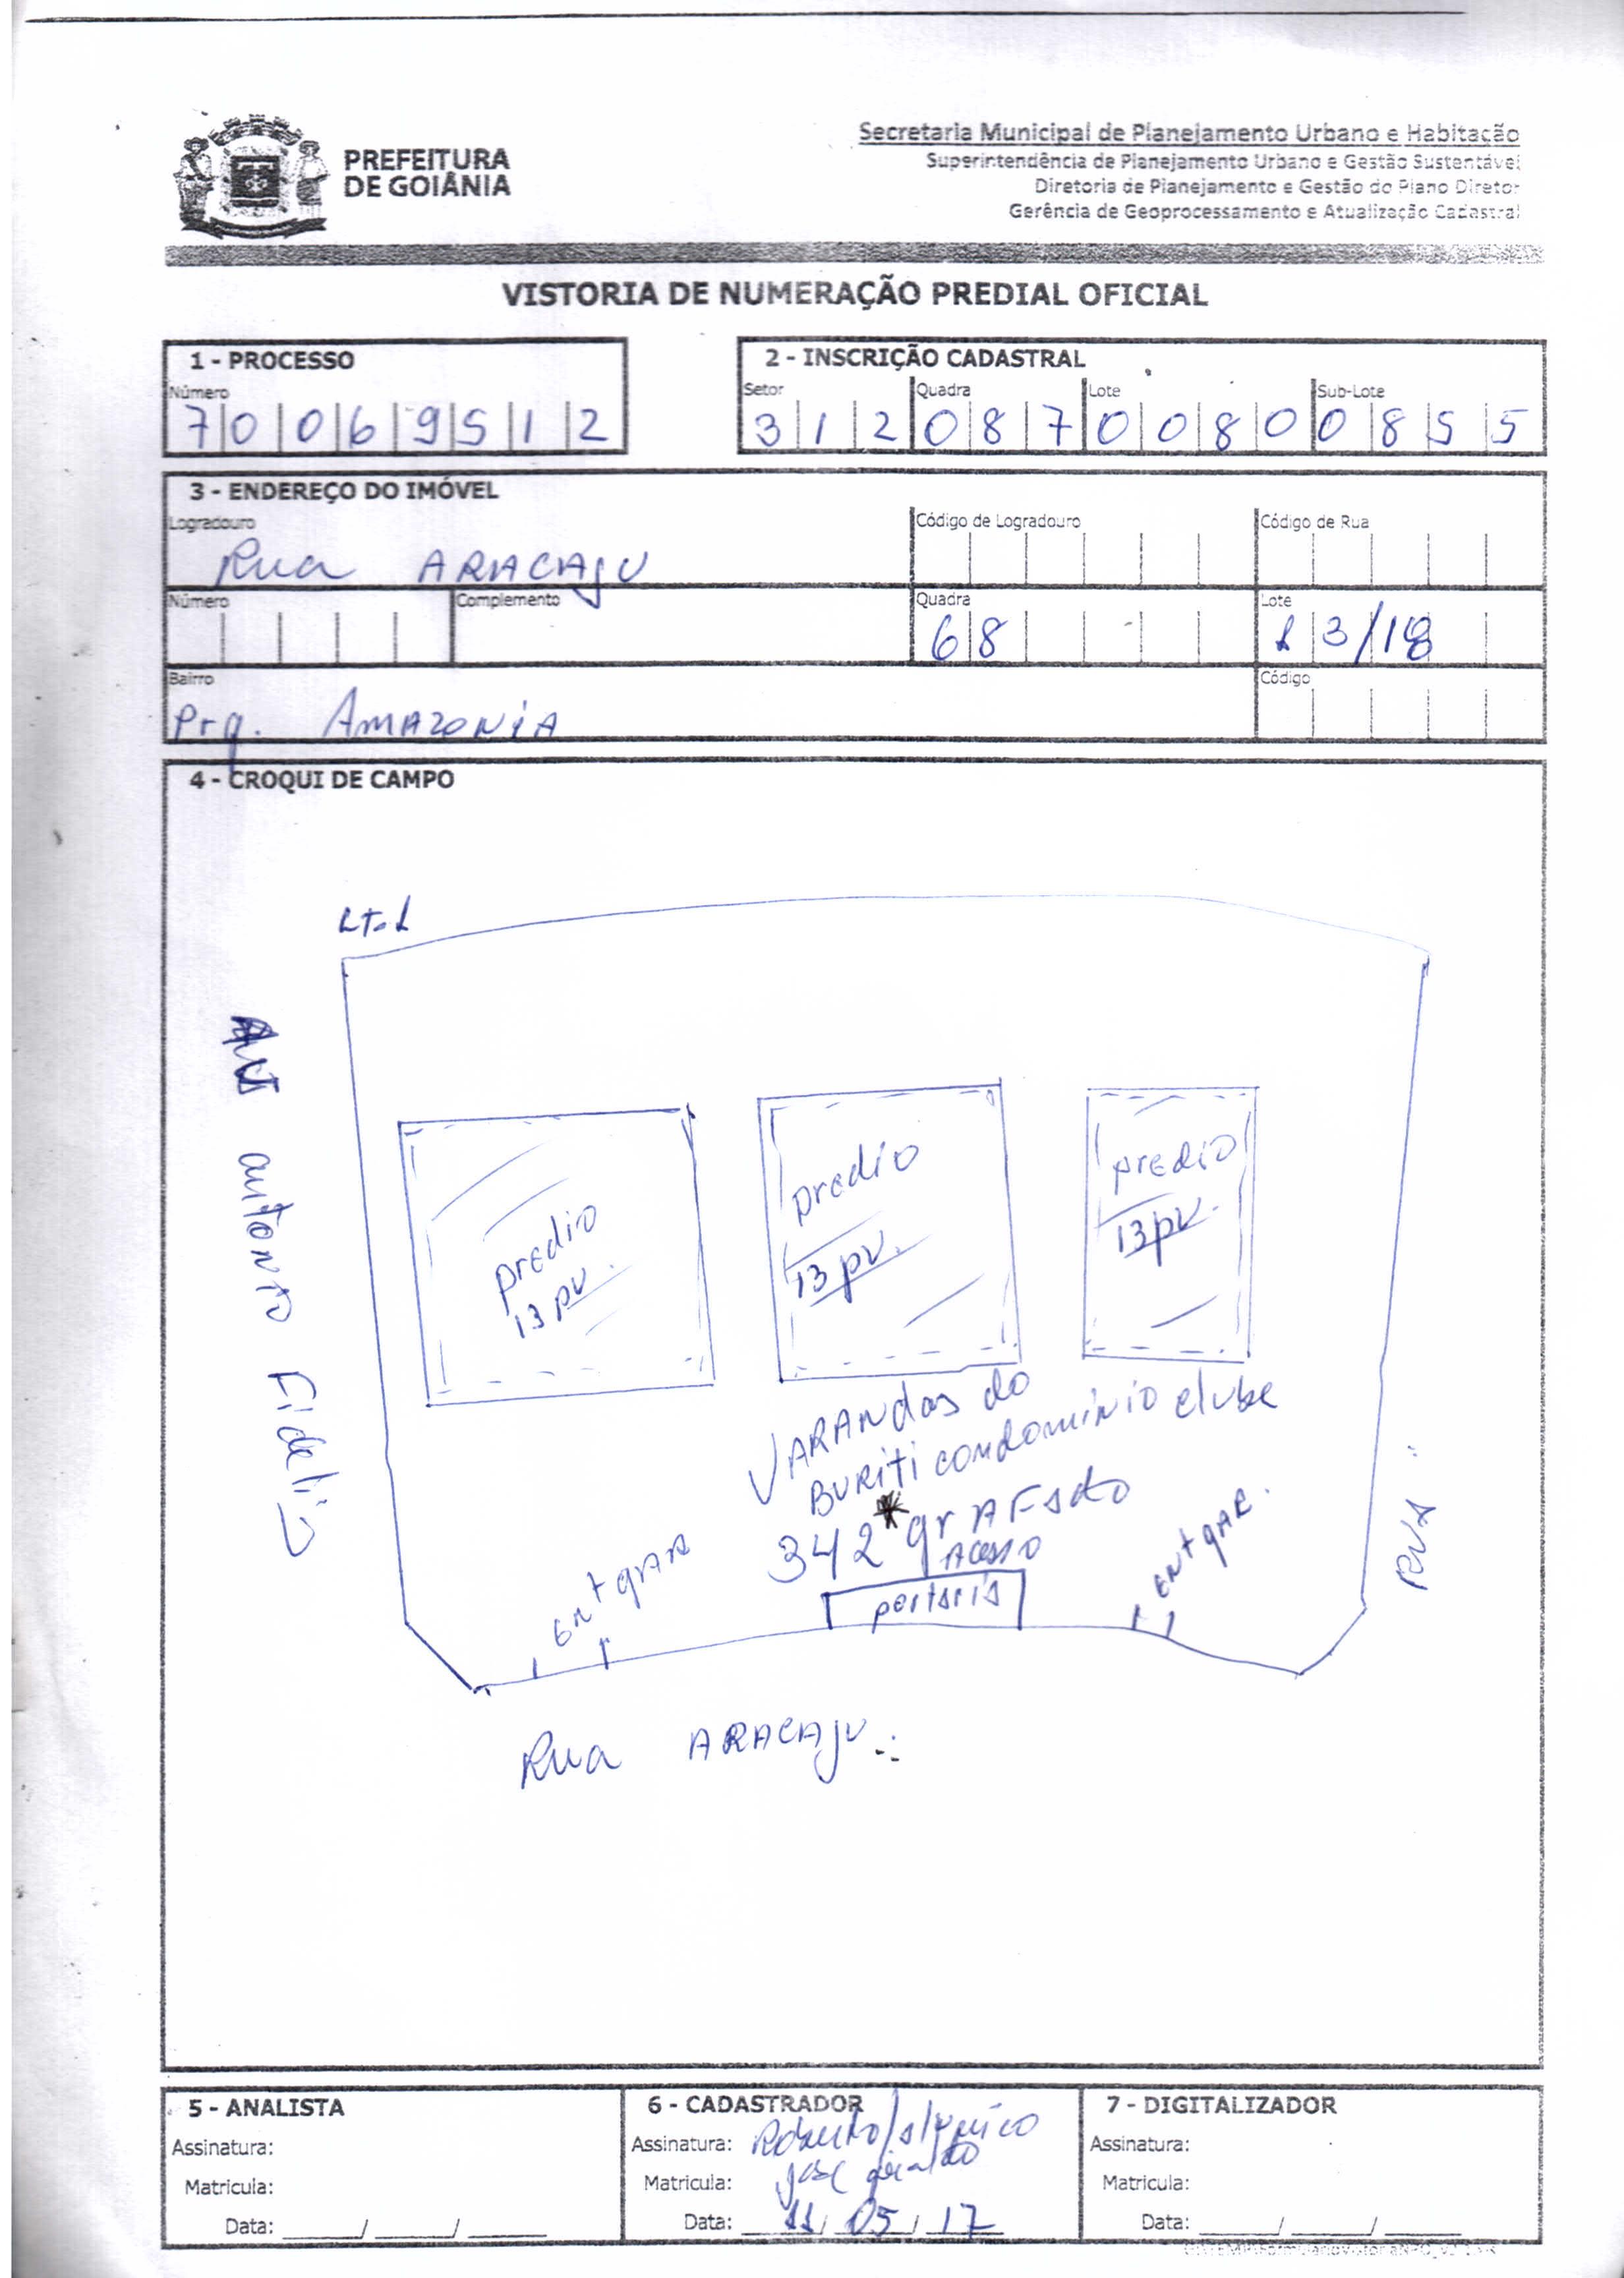 PREFEITURA
DE GOIÂNIA
Secretaria Municipal de Planejamento Urbano e Habitação
Superintendência de Planejamento Urbano e Gestão Sustentável
Diretoria de Planejamento e Gestão do Plano Diretor
Gerência de Geoprocessamento e Atualização Cadastral
VISTORIA DE NUMERAÇÃO PREDIAL OFICIAL
1 - PROCESSO
Número
70069512
2 - INSCRIÇÃO CADASTRAL
Setor Quadra Lote Sub-Lote
312 087 0080 0855
3 - ENDEREÇO DO IMÓVEL
Logradouro Código de Logradouro Código de Rua
Rua ARACAJU
Número Complemento Quadra Lote
68 13/18
Bairro Código
Prq. AMAZONIA
4 - CROQUI DE CAMPO
LT-1
AV antonto Fideli
predio
13 pv.
predio
13 pv.
predio
13 pv.
VARANdas do
BURiti condominio clube
342 * grAFado
Acesso
portaria
Ent gAR
Ent gAR.
RUA
Rua ARACAJU
5 - ANALISTA
Assinatura:
Matricula:
Data: / /
6 - CADASTRADOR
Assinatura: Roberto
Matricula: José
Data: 11/05/17
7 - DIGITALIZADOR
Assinatura:
Matricula:
Data: / /